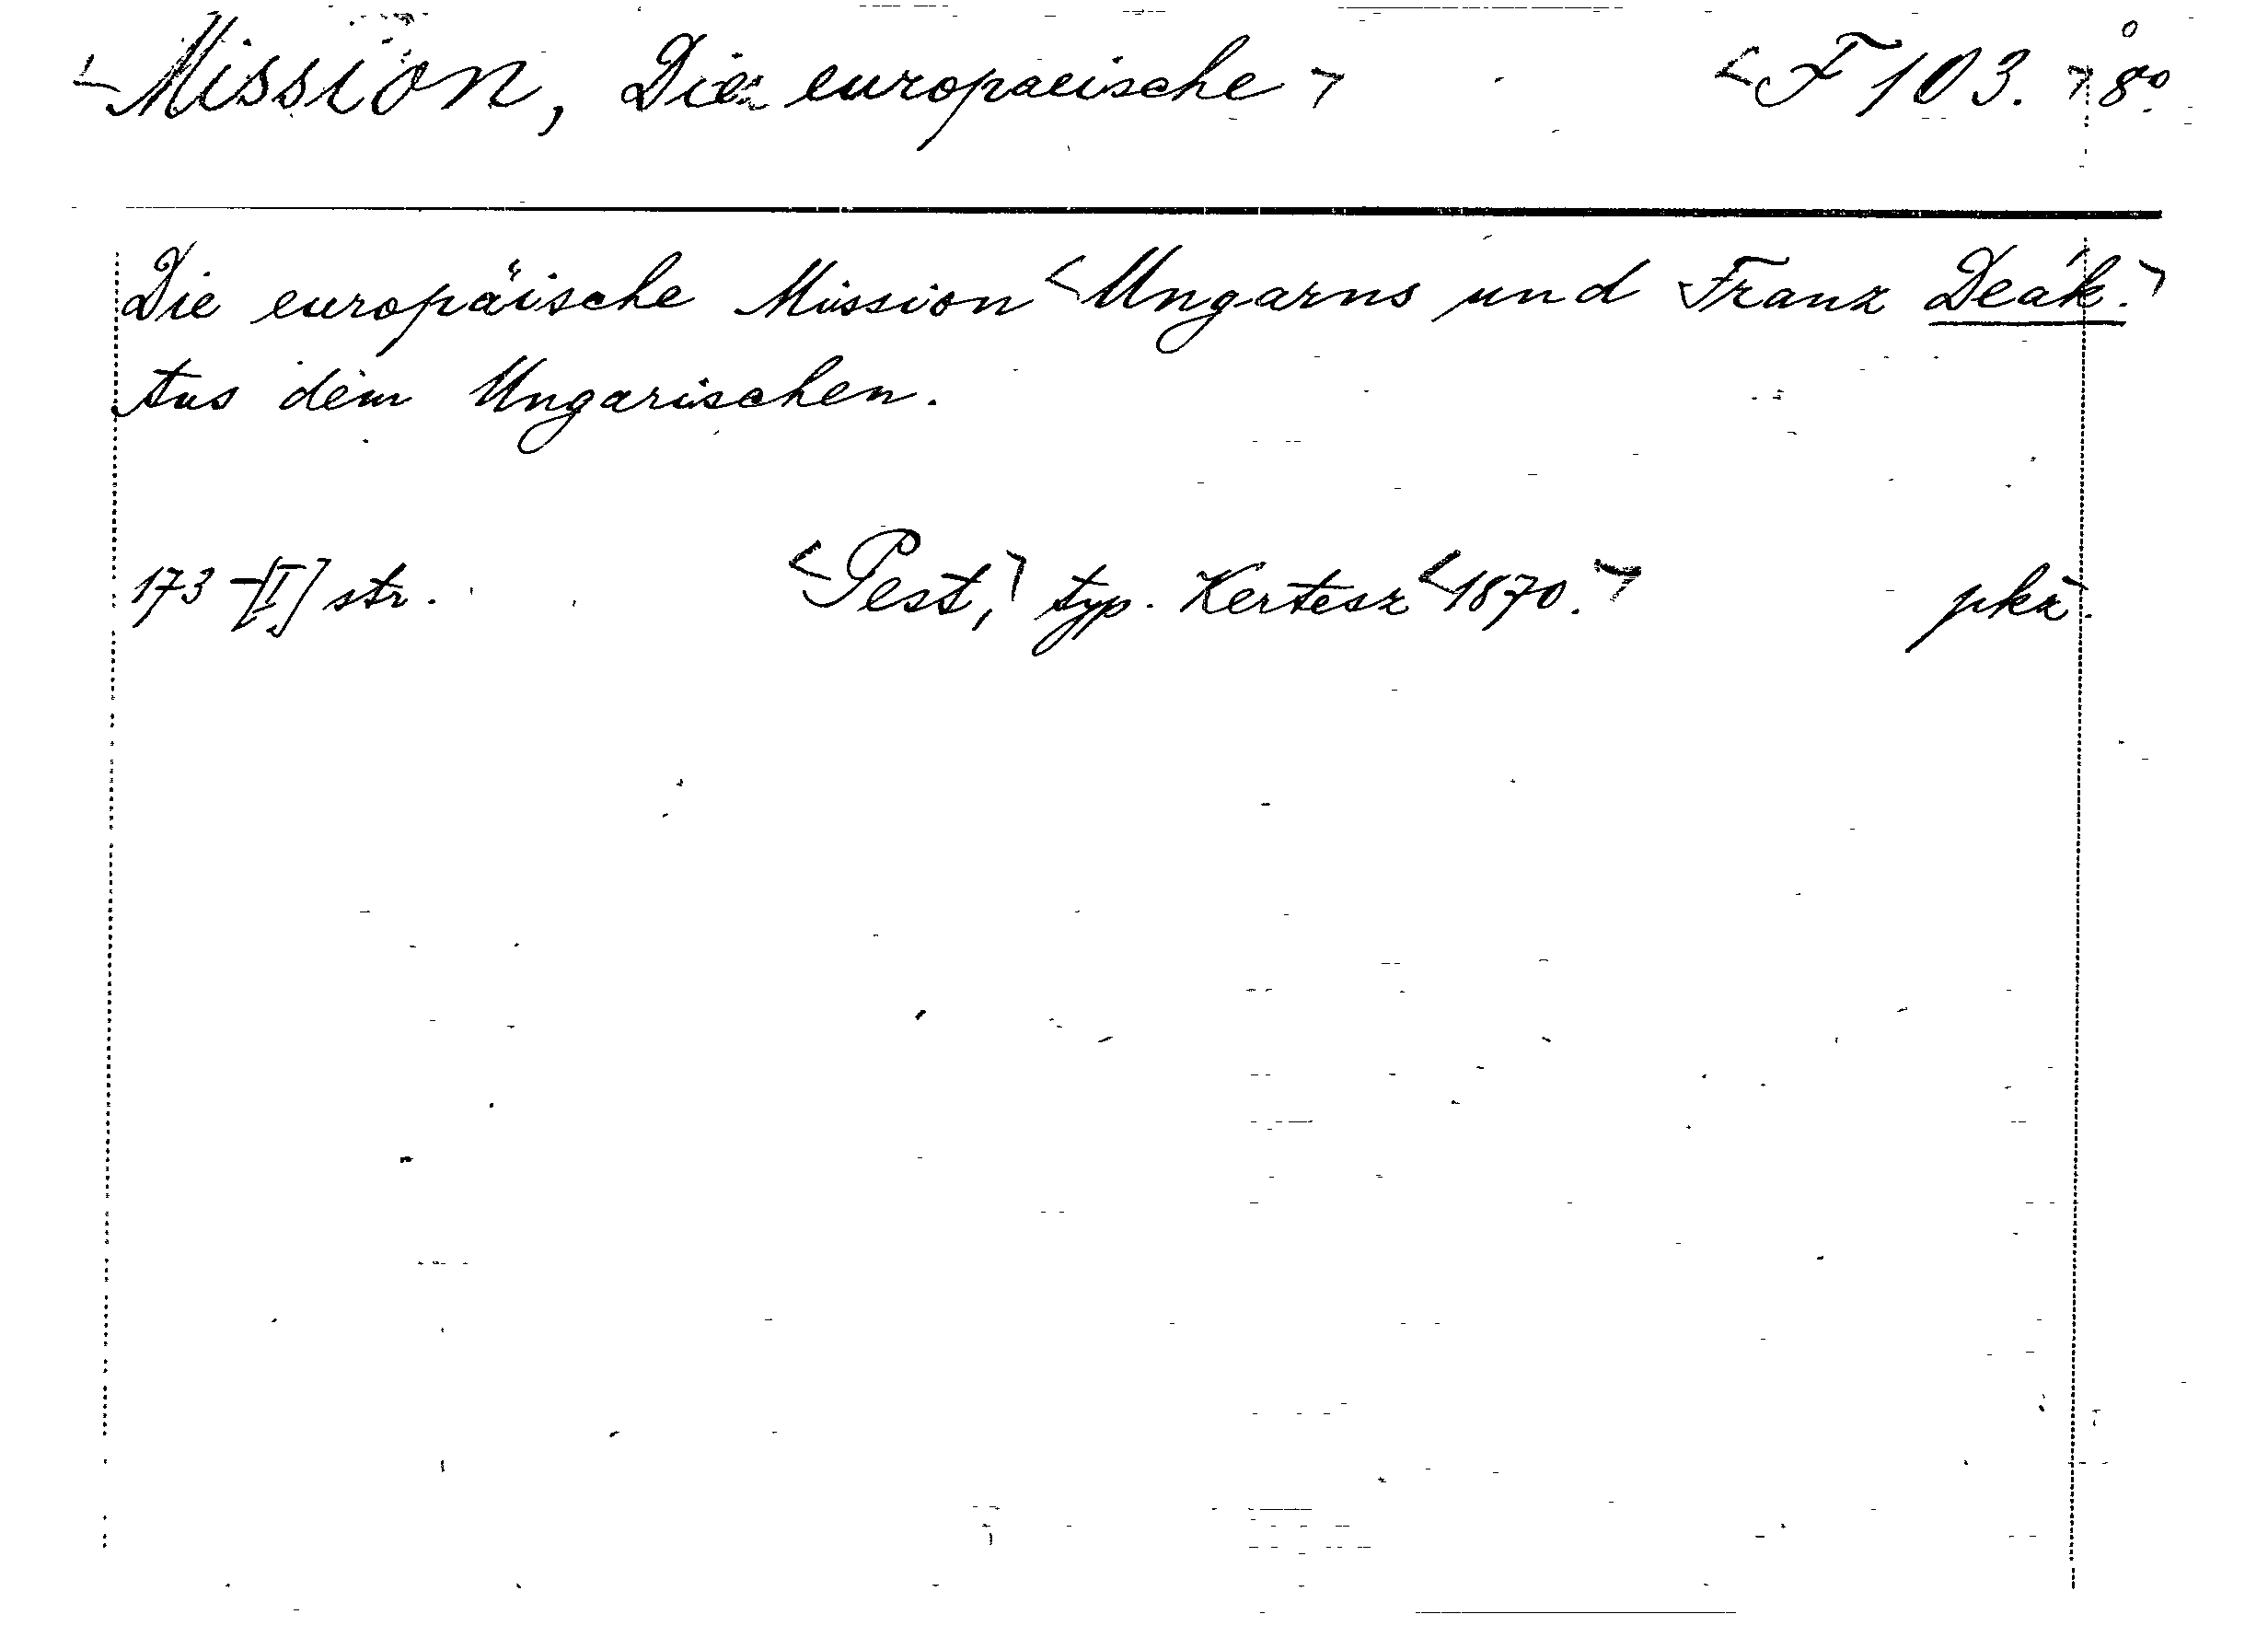 <Mission, Die europaeische> <F 103.> 8º
Die europäische Mission <Ungarns und Franz Deák.>
Aus dem Ungarischen.
173-[I] str. <Pest,> typ. Kertesz <1870.> pkž.